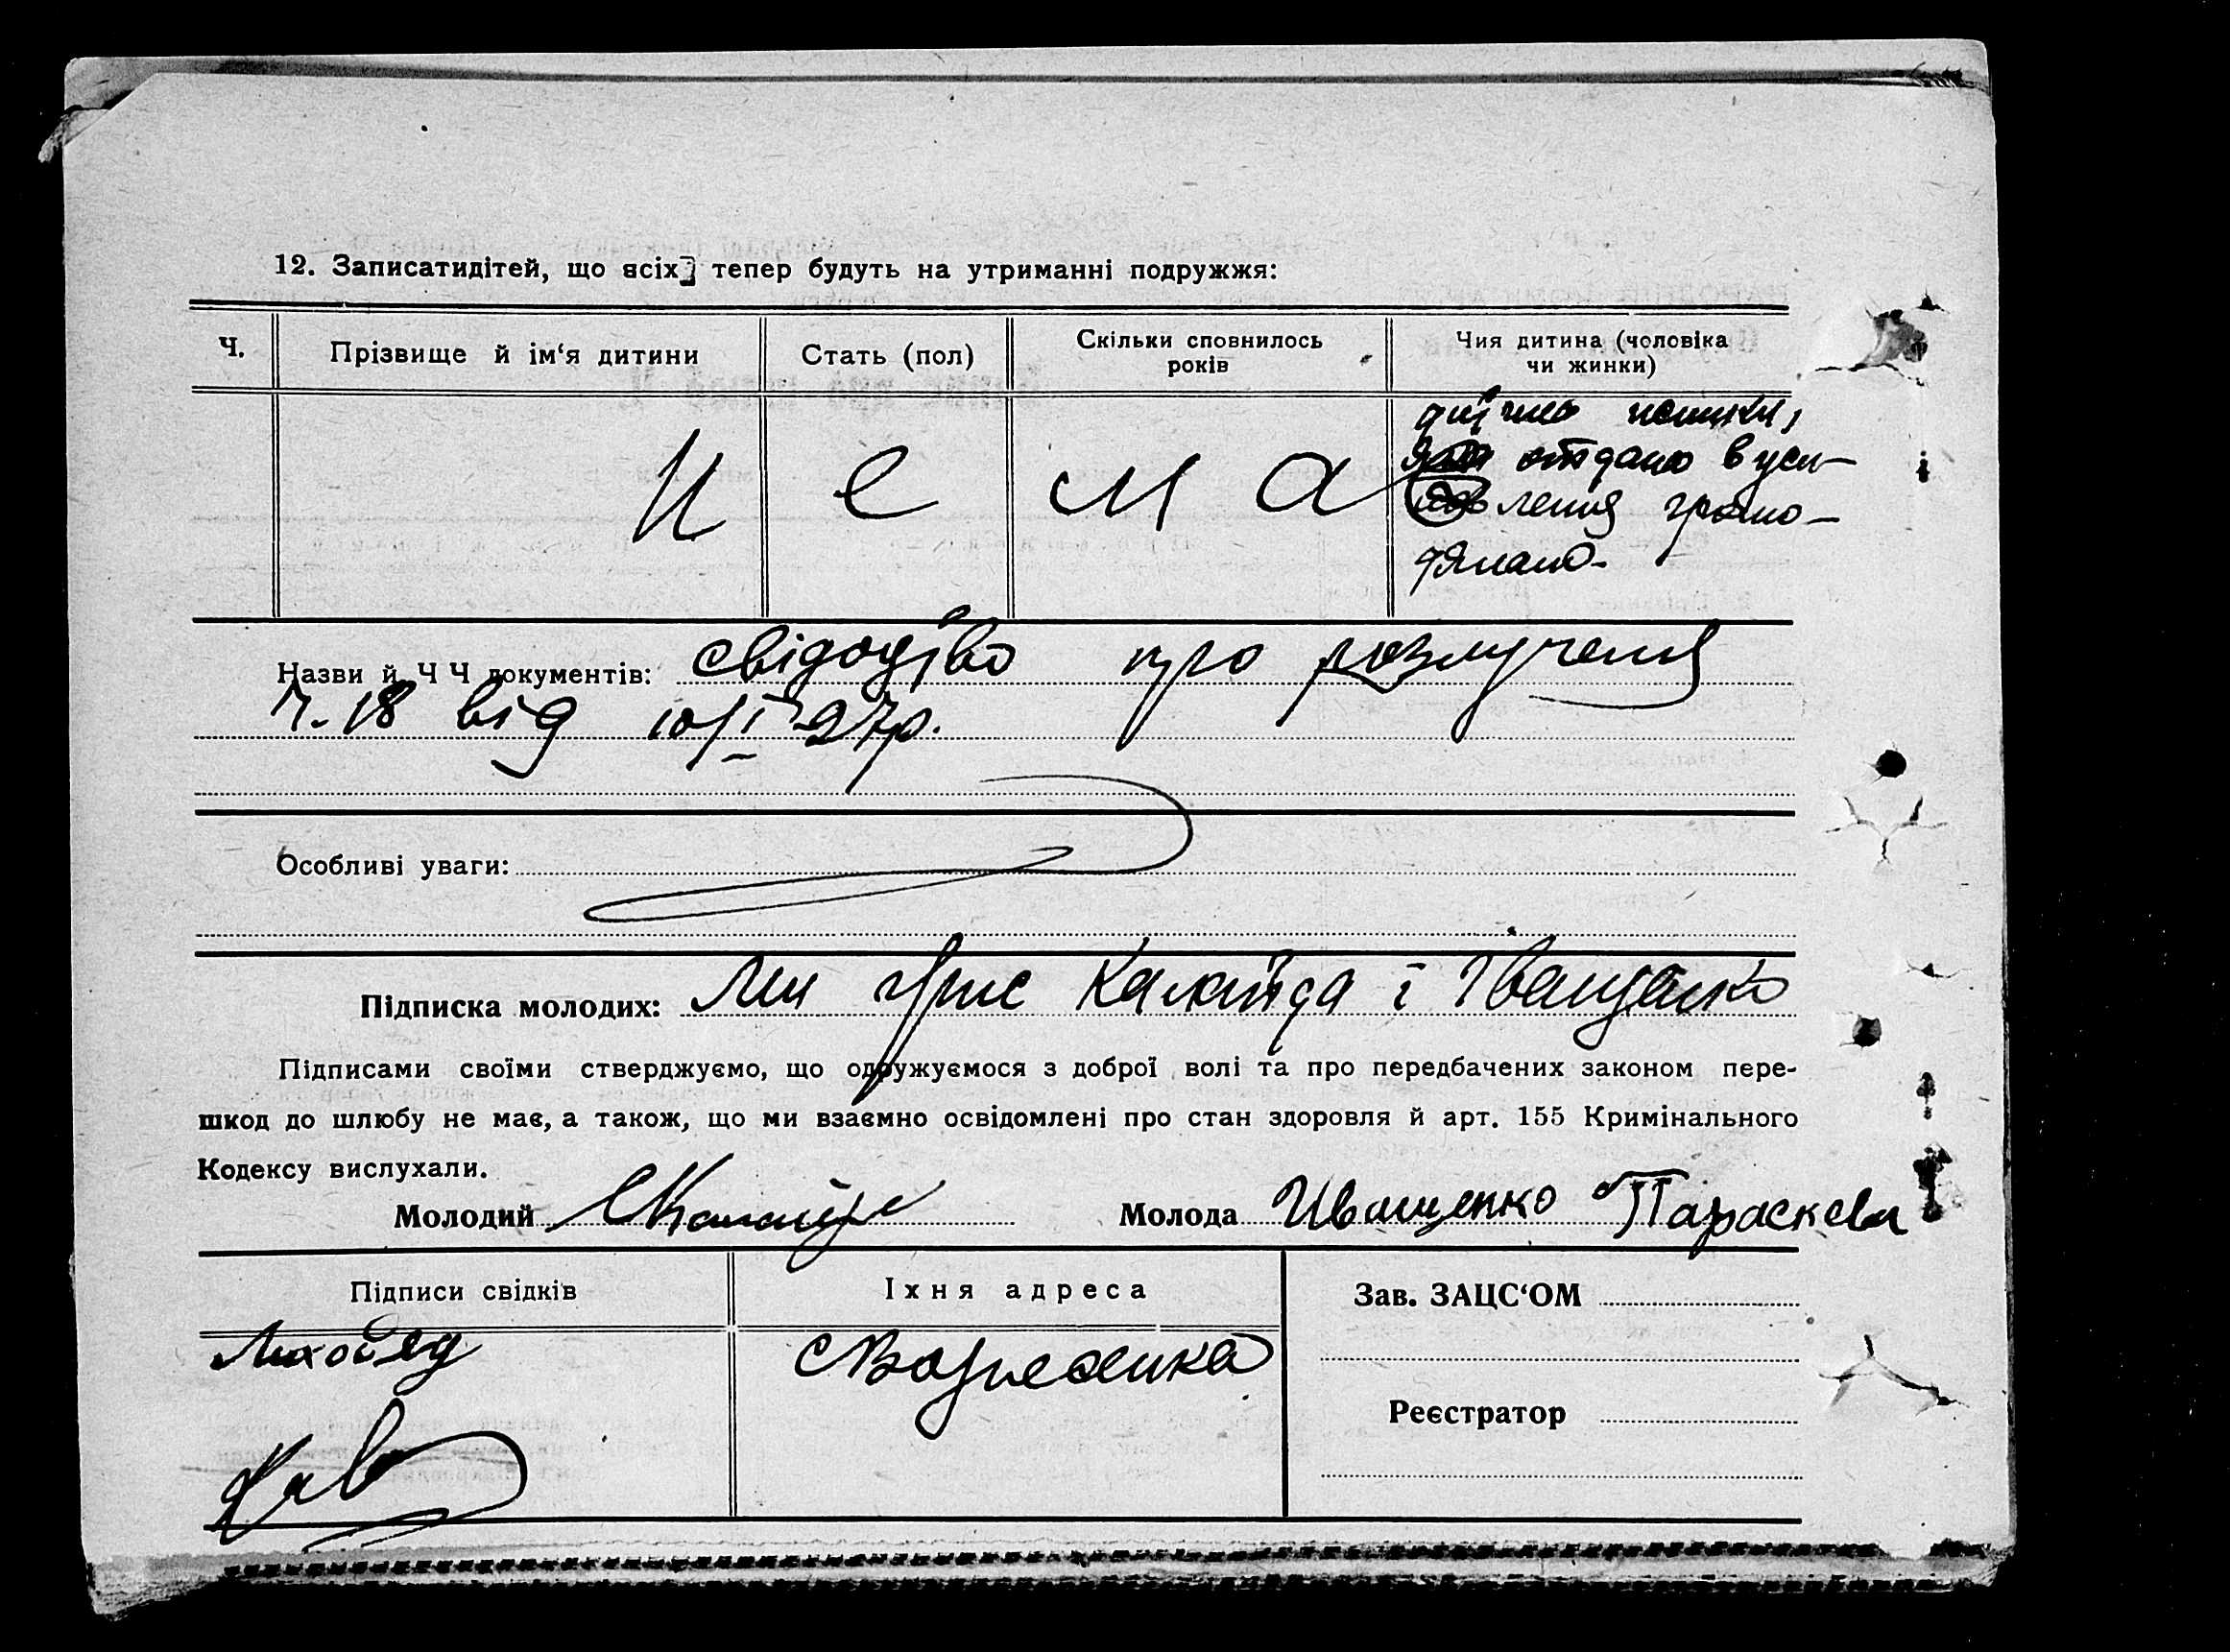 12. Записатидітей, що всіх тепер будуть на утриманні подружжя:
Ч. Прізвище й ім‘я дитини Стать (пол) Скільки сповнилось років Чия дитина (чоловіка чи жинки)
Н е м а
отдано в уси-
новлення громо-
дянам.
Назви й Ч Ч документів: свідоцтво про розлучення
Ч. 18 від 10/I 27р.
Особливі уваги:
Підписка молодих: Ми Калайда і Іващенко
Підписами своїми стверджуємо, що одружуємося з доброї волі та про передбачених законом пере-
шкод до шлюбу не має, а також, що ми взаємно освідомлені про стан здоровля й арт. 155 Кримінального
Кодексу вислухали.
Молодий Молода Иващенко Параскева
Підписи свідків Їхня адреса Зав. ЗАЦС‘ОМ
Лиходед с Вознесенка
Реєстратор